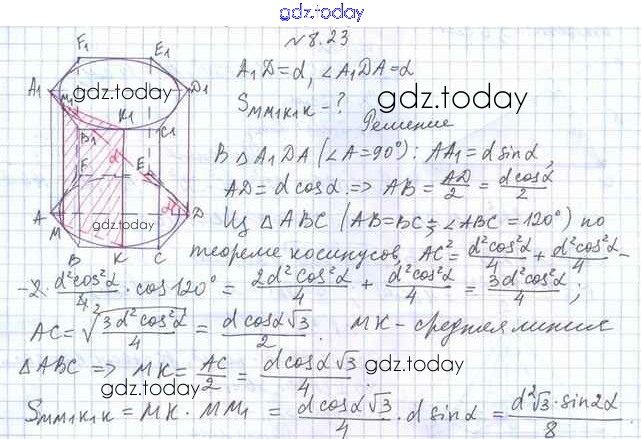 gdz.today
№8.23
A₁D=d, ∠A₁DA=α
S_MM₁K₁K - ?
gdz.today
gdz.today
Решение
В △A₁DA (∠A=90°): AA₁=d sinα,
AD=d cosα. => AB = AD/2 = d cosα/2
Из △ABC (AB=BC; ∠ABC=120°) по
теореме косинусов, AC² = d²cos²α/4 + d²cos²α/4 -
-2· d²cos²α/4 · cos120° = 2d²cos²α/4 + d²cos²α/4 = 3d²cos²α/4 ;
AC = √(3d²cos²α/4) = d cosα√3/2 . MK - средняя линия
△ABC => MK = AC/2 = d cosα√3/4 .
gdz.today
gdz.today
S_MM₁K₁K = MK · MM₁ = d cosα√3/4 · d sinα = d²√3·sin2α/8
F₁ E₁
A₁ M₁ D₁
B₁ K₁ C₁
d
F E
gdz.today
A M α D
B K C